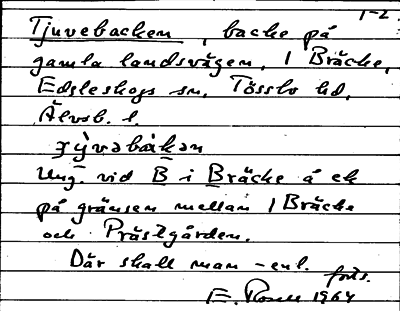 1-2.
Tjuvebacken, backe på
gamla landsvägen, 1 Bräcke,
Edsleskogs sn, Tössbo hd,
Älvsb. l.
ʒỳvəbàkən
Ung. vid B i Bräcke å ek
på gränsen mellan 1 Bräcke
och Prästgården.
Där skall man - enl.
forts.
E. 1964